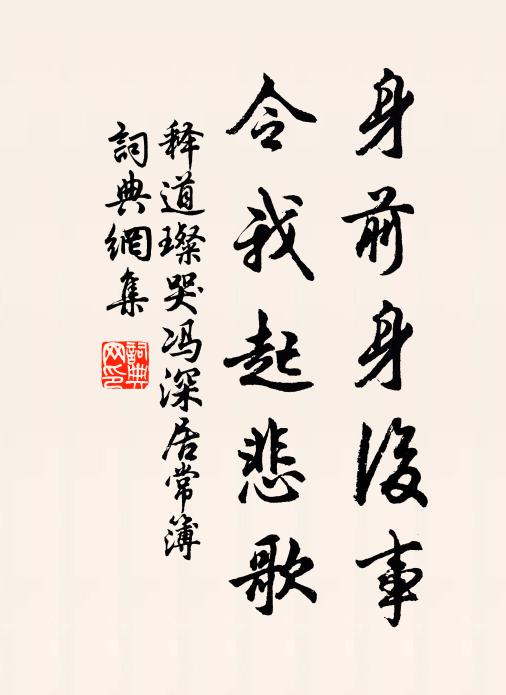 身前身後事
令我起悲歌
释道璨哭冯深居常簿
詞典網集
詞典網印